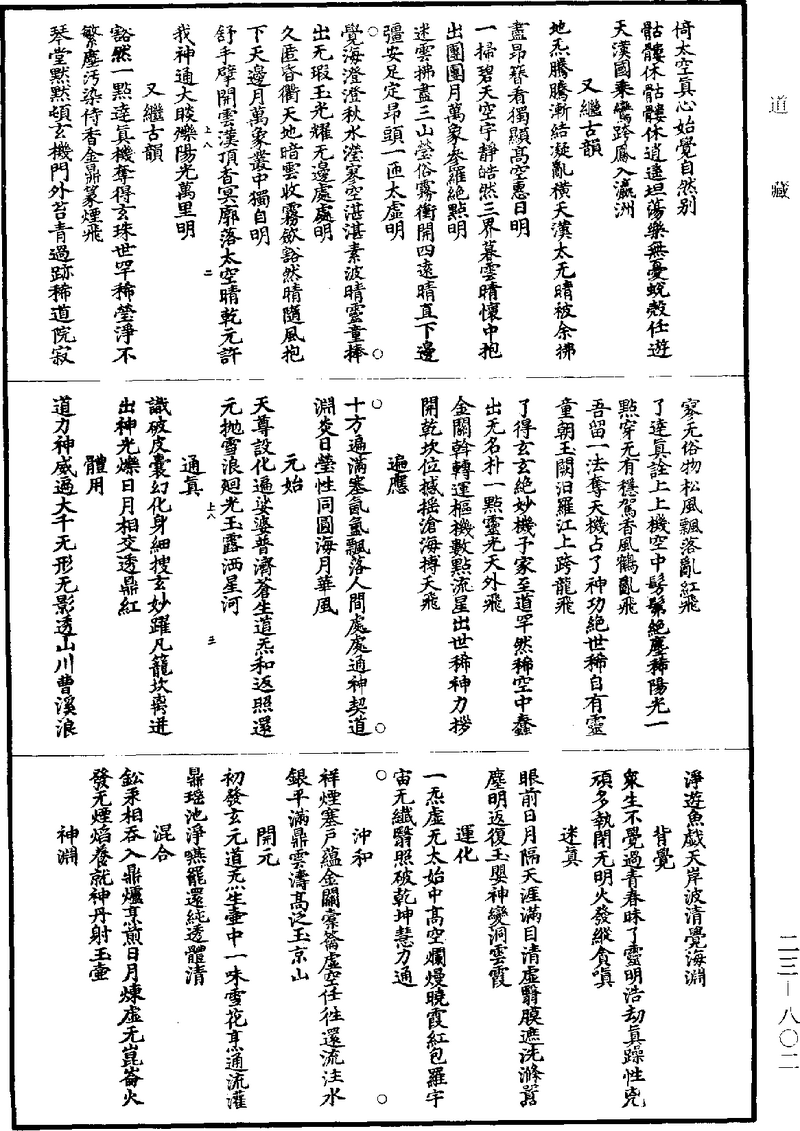 道藏
倚太空真心始覺自然别
骷髏休骷髏休逍遥坦蕩樂無憂蛻殻任遊
天漢國乘鸞跨鳳入瀛洲
又繼古韻
地炁騰騰漸結凝亂横天漢太无晴被余拂
盡昂藜看獨顯高空惠日明
一掃碧天空宇靜皓然三界暮雲晴懷中抱
出團團月萬象參羅絶點明
迷雲拂盡三山瑩俗霧衝開四遠晴直下邊
疆安足定昂頭一匝太虚明
覺海澄澄秋水瀅寥空湛湛素波晴靈童捧
出无瑕玉光耀无邊處處明
久匿昏衢天地暗雲收霧歛豁然晴隨風抱
下天邊月萬象叢中獨自明
舒手擘開雲漢頂杳冥廓落太空晴乾元許
上八
二
我神通大睒爍陽光萬里明
又繼古韻
豁然一點達真機奪得玄珠世罕稀瑩淨不
繁塵污染侍香金鼎篆煙飛
琴堂默默頓玄機門外苔青過跡稀道院寂
寥无俗物松風飄落亂紅飛
了達真詮上上機空中髣髴絶塵稀陽光一
點穿无有穩駕香風鶴亂飛
吾留一法奪天機占了神功絶世稀自有靈
童朝玉闕汨羅江上跨龍飛
了得玄玄絶妙機予家至道罕然稀空中蠢
出无名朴一點靈光天外飛
金關斡轉運樞機數點流星出世稀神力拶
開乾坎位撼摇滄海摶天飛
遍應
十方遍滿塞氤氲飄落人間處處通神契道
淵炎日瑩性同圓海月華風
元始
天尊設化遍娑婆普濟蒼生道炁和返照還
元抛雪浪廻光玉露洒星河
上八
三
通真
識破皮囊幻化身細搜玄妙躍凡籠坎离迸
出神光爍日月相交透鼎紅
體用
道力神威遍大千无形无影透山川曹溪浪
淨遊魚戯天岸波清覺海淵
背覺
衆生不覺過青春昧了靈明浩劫真躁性兇
頑多執閉无明火發縱貪嗔
迷真
眼前日月隔天涯滿目清虚翳膜遮洗滌嚣
塵明返復玉嬰神變洞雲霞
運化
一炁虚无太始中高空爛熳曉霞紅包羅宇
宙无纖翳照破乾坤慧力通
沖和
祥煙塞户蘊金關橐籥虚空任往還流注水
銀平滿鼎雲濤高泛玉京山
開元
初發玄元道炁生壷中一味雪花烹通流灌
鼎瑶池淨嚥罷還純透體清
混合
鈆汞相吞入鼎爐烹煎日月煉虚无崑崙火
發无煙焰養就神丹射玉壷
神淵
二三-八〇二